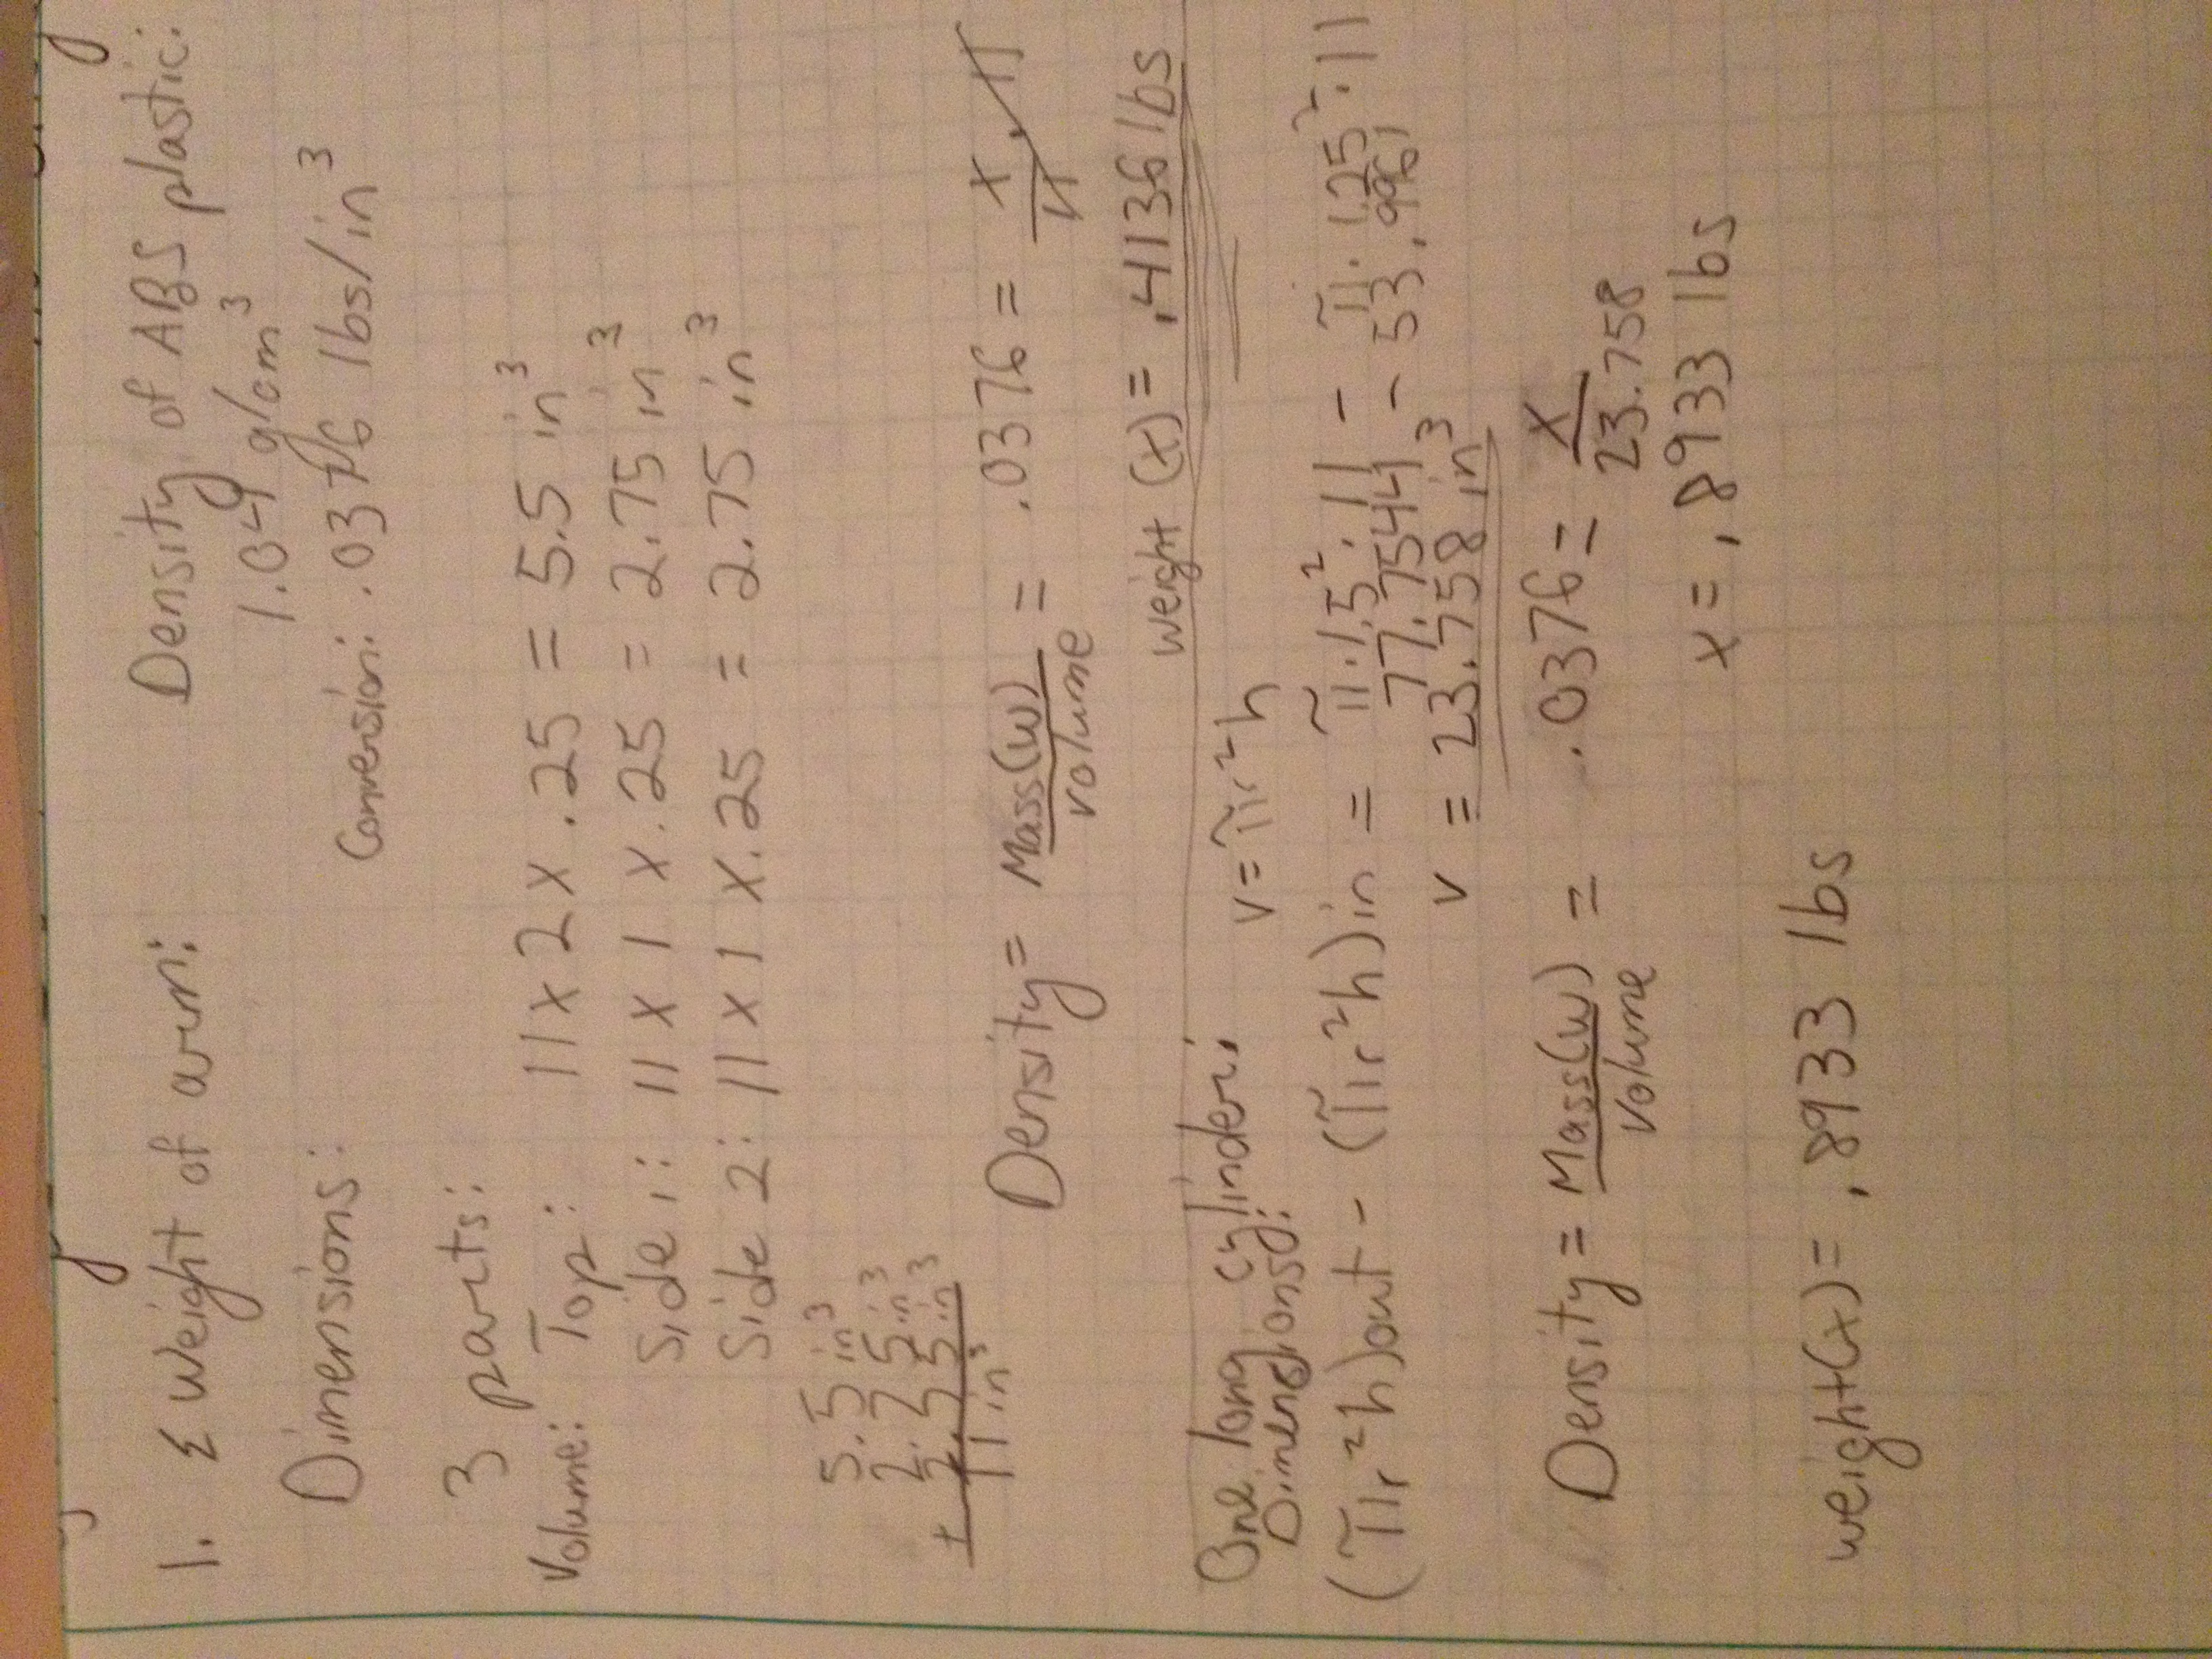 1. Σ Weight of arm:
Density of ABS plastic:
1.04 g/cm³
Dimensions:
Conversion: .0376 lbs/in³
3 parts:
Volume: Top: 11 x 2 x .25 = 5.5 in³
Side 1: 11 x 1 x .25 = 2.75 in³
Side 2: 11 x 1 x .25 = 2.75 in³
5.5 in³
2.75 in³
+ 2.75 in³
11 in³
Density = Mass(w)/volume = .0376 = x/11 · 11
weight (x) = .4136 lbs
One long cylinder:
Dimensions:
v = πr²h
(πr²h)out - (πr²h)in = π·1.5²·11 - π·1.25²·11
77.7544 - 53.9961
v = 23.758 in³
Density = Mass(w)/volume = .0376 = x/23.758
x = .8933 lbs
weight(x) = .8933 lbs